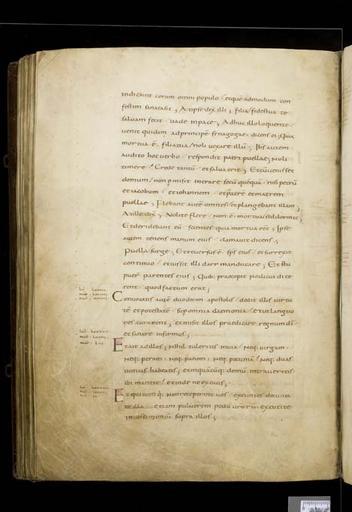 indicauit coram omni populo & quē admodum con
festim sanata sit; At ipse dix illi; filia fides tua te
saluam fecit uade in pace; Adhuc illo loquente
uenit quidam ad principē synagogae dicens ei; Quia
mortua ē filia tua noli uexare illū; Ihs autem
audito hoc uerbo respondit patri puellae; Noli
timere Crede tantū & salua erit; Et cū uenisset
domum non pmisit intrare secū quēquā nisi petrū
et iacobum & iohannem & patrē & matrem
puellae; Flebant autē omnes & plangebant illam;
At ille dix; Nolite flere non ē mortua sed dormit
Et deridebant eū scientes quia mortua eet; Ipse
autem tenens manum eius clamauit dicens;
Puella surge; Et reuersus ē sps eius & surrexit
continuo & iussit illi dari manducare; Et stu
puer parentes eius; Quib; praecepit ne alicui dice
rent quod factum erat;
Conuocatis autē duodecim apostolis dedit illis uirtu
tē & potestatē sup omnia daemonia & ut languo
res curarent; & misit illos praedicare regnum di
et sanare infirmos;
Et ait ad illos; Nihil tuleritis in uia Neq; uirgam
Neq; peram Neq; panem Neq; pecuniā Neq; duas
tunicas habeatis; & in quācūq; domū intraueritis
ibi manete & inde ne exeatis;
Et quicumq; non receperint uos exeuntes de ciuita
te illa etiam puluerem pedū uestrorū excutite
in testimoniū supra illos;